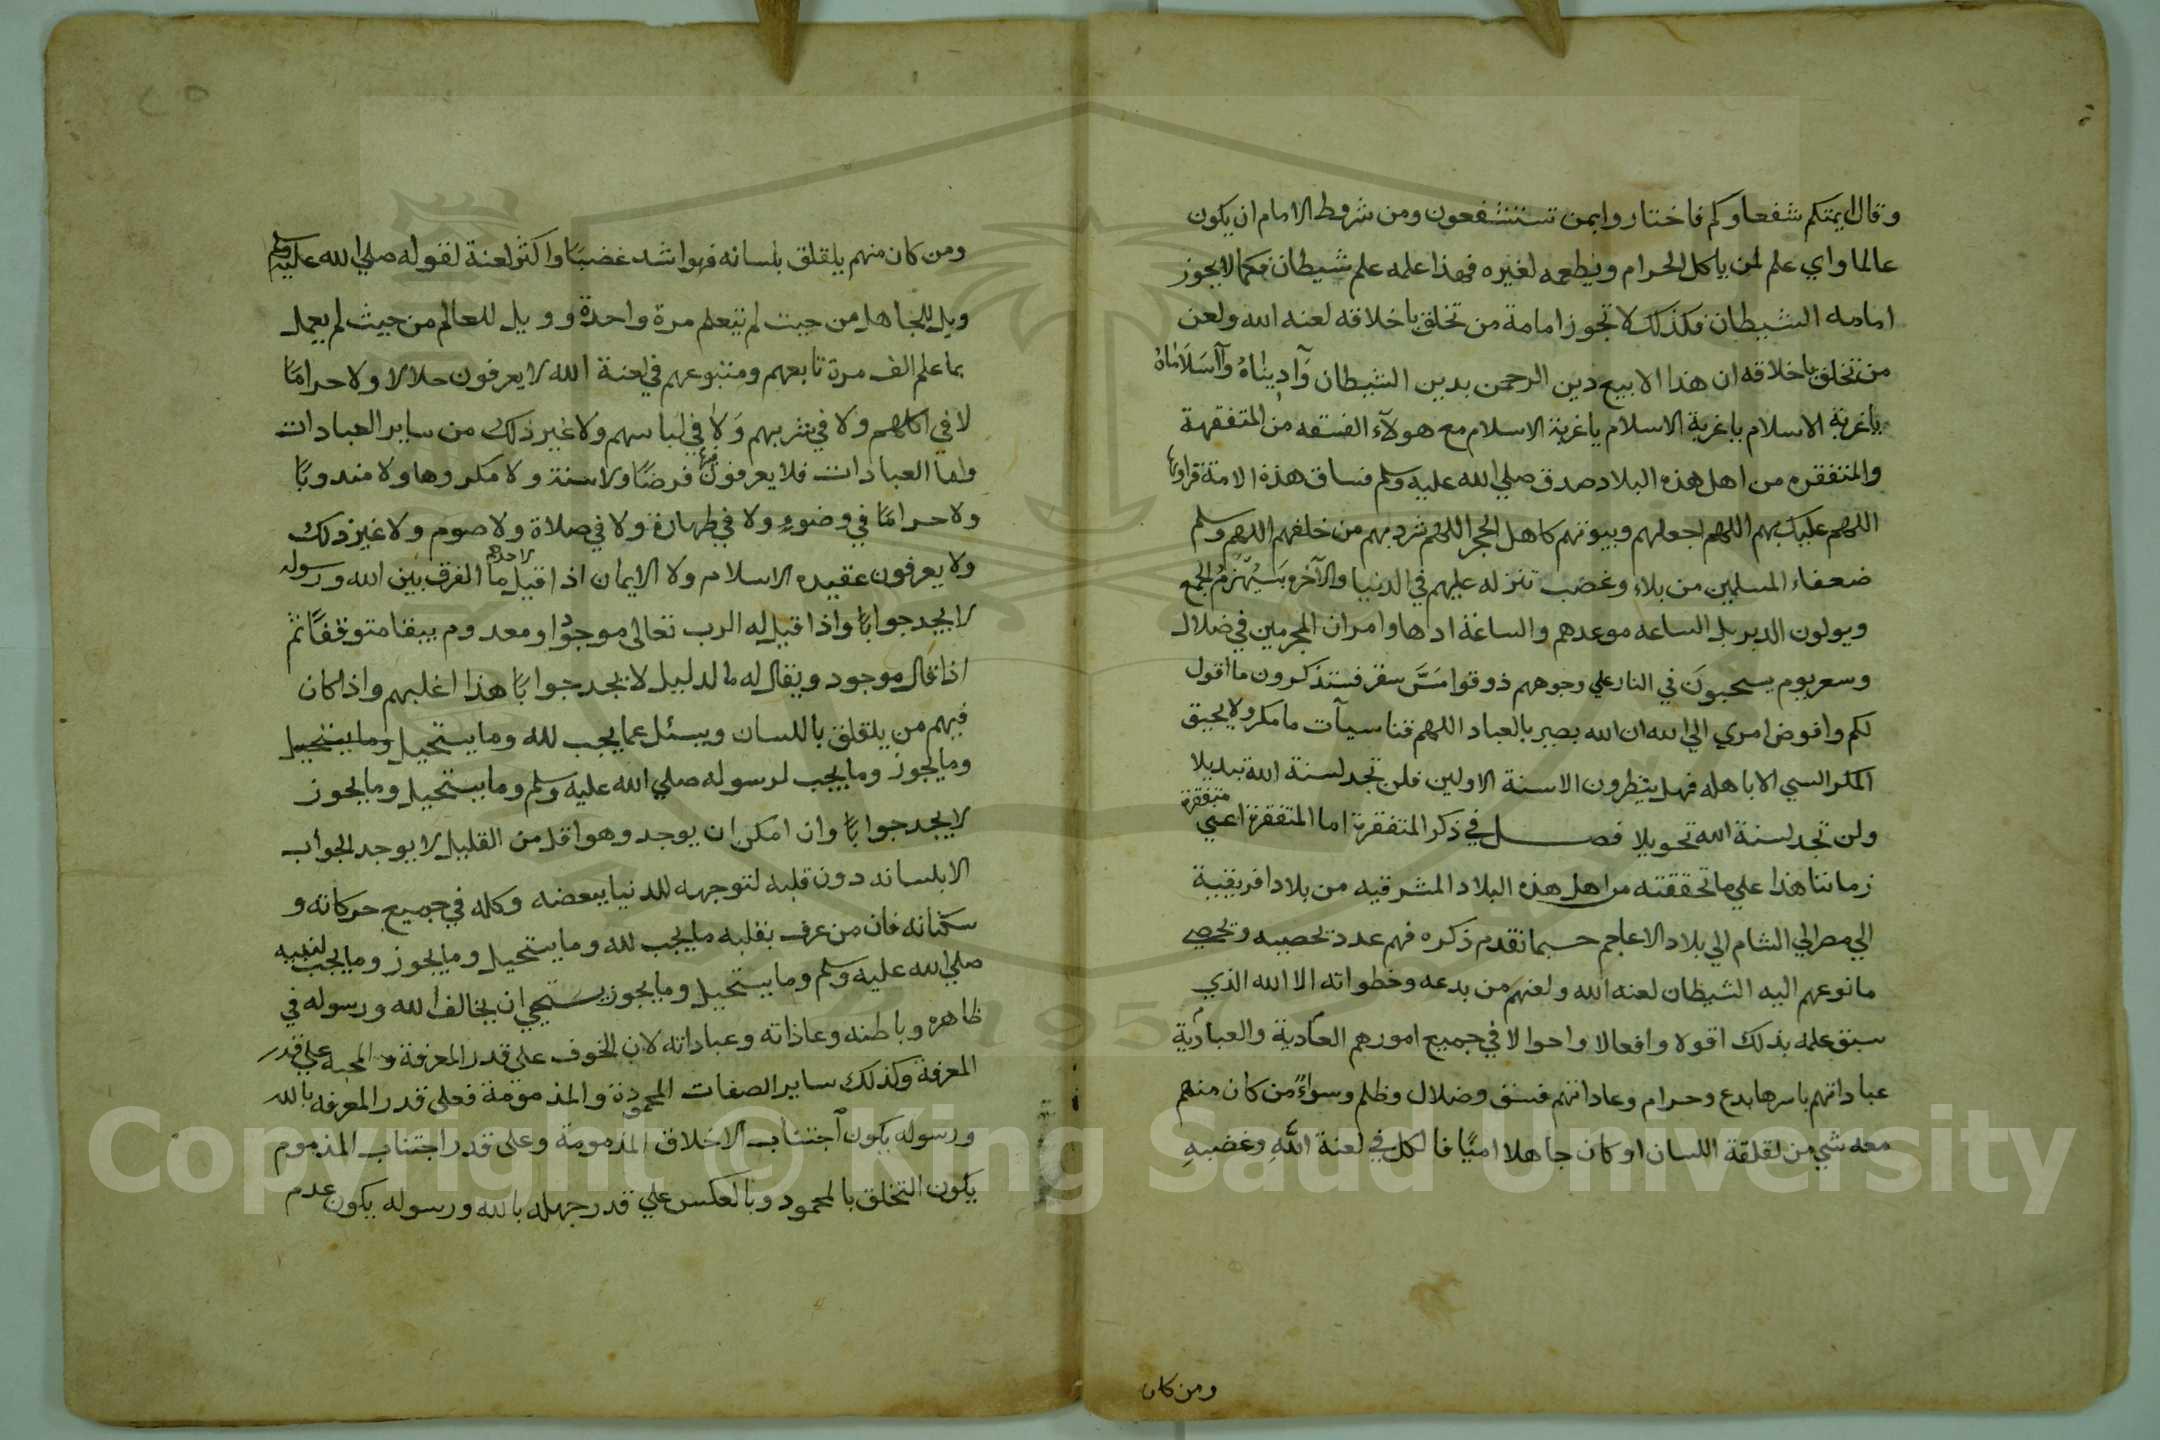 وقال ايمتكم شفعاوكم فاختاروا بمن تستشفعون ومن شروط الامام ان يكون
عالما واي علم لمن ياكل الحرام ويطعمه لغيره فهذا علمه علم شيطان فكما لا يجوز
امامه الشيطان فكذلك لا تجوز امامة من تخلق باخلاقه لعنه الله ولعن
من تخلق باخلاقه ان هذا الا بيع دين الرحمن بدين الشيطان وَآدِينَاهُ وَآسَلَامَاهُ
ياغربة الاسلام ياغربة الاسلام ياغربة الاسلام مع هولآء الفسقه من المتفقهة
والمتفقره من اهل هذه البلاد صدق صلي الله عليه وسلم فساق هذه الامة قراوها
اللهم عليك بهم اللهم اجعلهم وبيوتهم كاهل الحجر اللهم شرد بهم من خلفهم اللهم وسلم
ضعفاء المسلمين من بلاء وغضب تنزله عليهم في الدنيا والآخره سَيُهْزَمُ الجمع
ويولون الدبر بل الساعه موعدهم والساعة ادها وامر ان المجرمين في ضلال
وسعر يوم يسحبونَ في النار علي وجوههم ذوقوا مَسَّ سقر فستذكرون ما اقول
لكم وافوض امري الي الله ان الله بصير بالعباد اللهم قنا سيآت ما مكر ولا يحيق
المكر السي الا باهله فهل ينظرون الا سنة الاولين فلن تجد لسنة الله تبديلا
ولن تجد لسنة الله تحويلا فصل في ذكر المتفقرة اما المتفقرة اعني متفقرة
زماننا هذا علي ما تحققته من اهل هذه البلاد المشرقيه من بلاد افريقية
الي مصر الي الشام الي بلاد الاعاجم حسبما تقدم ذكره فهم عدد تحصيه ويحصي
ما نوعهم اليه الشيطان لعنه الله ولعنهم من بدعه وخطواته الا الله الذي
سبق علمه بذلك اقولا وافعالا واحوالا في جميع امورهم العادية والعبادية
عباداتهم باسرها بدع وحرام وعاداتهم فسق وضلال وظلم وسواءً من كان منهم
معه شي من لقلقة اللسان او كان جاهلا اميًا فالكل في لعنة اللهِ وغضبهِ
ومن كان
ومن كان منهم يلقلق بلسانه فهوا شد غضبًا واكثر لعنة لقوله صلي الله عليه وسلم
ويل للجاهل من حيث لم يتعلم مرة واحدة وويل للعالم من حيث لم يعمل
بما علم الف مرة تابعهم ومتبوعهم في لعنة الله لا يعرفون حلالا ولا حرامًا
لا في اكلهم ولا في شربهم وَلا في لباسهم ولا غير ذلك من ساير العبادات
واما العبادات فلا يعرفون فيها فرضًا ولا سنة ولا مكروها ولا مندوبًا
ولا حرامًا في وضوءٍ ولا في طهارة ولا في صلاة ولا صوم ولا غير ذلك
ولا يعرفون عقيده الاسلام ولا الايمان اذا قيل لاحدهم ما الفرق بين الله ورسوله
لا يجد جوابًا واذا قيل له الرب تعالى موجودٌ او معدوم يبقا متوقفًا ثم
اذا قال موجود ويقال له ما لدليل لا يجد جوابًا هذا اغلبهم واذا كان
فيهم من يلقلق باللسان ويسئل عما يجب لله وما يستحيل وما يستحيل
وما يجوز وما يجب لرسوله صلي الله عليه وسلم وما يستحيل وما يجوز
لا يجد جوابًا وان امكن ان يوجد وهو اقل من القليل لا يوجد الجواب
الا بلسانه دون قلبه لتوجهه للدنيا ببعضه وكله في جميع حركاته و
سكناته فان من عرف بقلبه ما يجب لله وما يستحيل وما يجوز وما يجب لنبيه
صلي الله عليه وسلم وما يستحيل وما يجوز يستحي ان يخالف الله ورسوله في
ظاهره وباطنه وعاداته وعباداته لان الخوف علي قدر المعرفة والمحبه علي قدر
المعرفة وكذلك ساير الصفات المحمودة والمذمومة فعلي قدر المعرفه بالله
ورسوله يكون اجتناب الاخلاق المذمومة وعلى قدر اجتناب المذموم
يكون التخلق بالمحمود وبالعكس علي قدر جهله بالله ورسوله يكون عدم
Copyright © King Saud University
1957